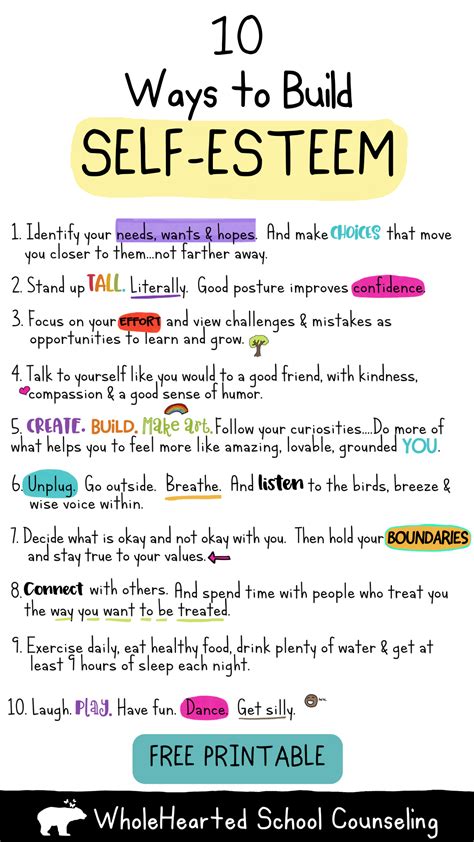 10
Ways to Build
SELF-ESTEEM
1. Identify your needs, wants & hopes. And make CHOICES that move
you closer to them...not farther away.
2. Stand up TALL. Literally. Good posture improves confidence.
3. Focus on your EFFORT and view challenges & mistakes as
opportunities to learn and grow.
4. Talk to yourself like you would to a good friend, with kindness,
compassion & a good sense of humor.
5. CREATE. BUILD. Make art. Follow your curiosities....Do more of
what helps you to feel more like amazing, lovable, grounded YOU.
6. Unplug. Go outside. Breathe. And listen to the birds, breeze &
wise voice within.
7. Decide what is okay and not okay with you. Then hold your BOUNDARIES
and stay true to your values.
8. Connect with others. And spend time with people who treat you
the way you want to be treated.
9. Exercise daily, eat healthy food, drink plenty of water & get at
least 9 hours of sleep each night.
10. Laugh. Play. Have fun. Dance. Get silly.
FREE PRINTABLE
WholeHearted School Counseling